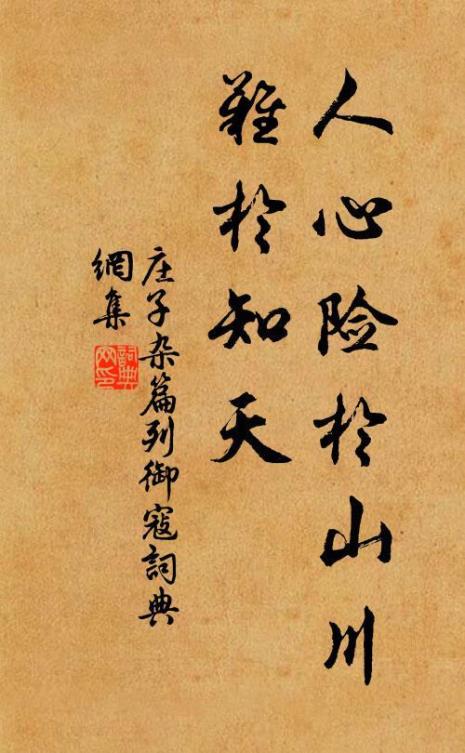 人心险於山川
難於知天
庄子杂篇列御寇詞典
網集
詞典
网印